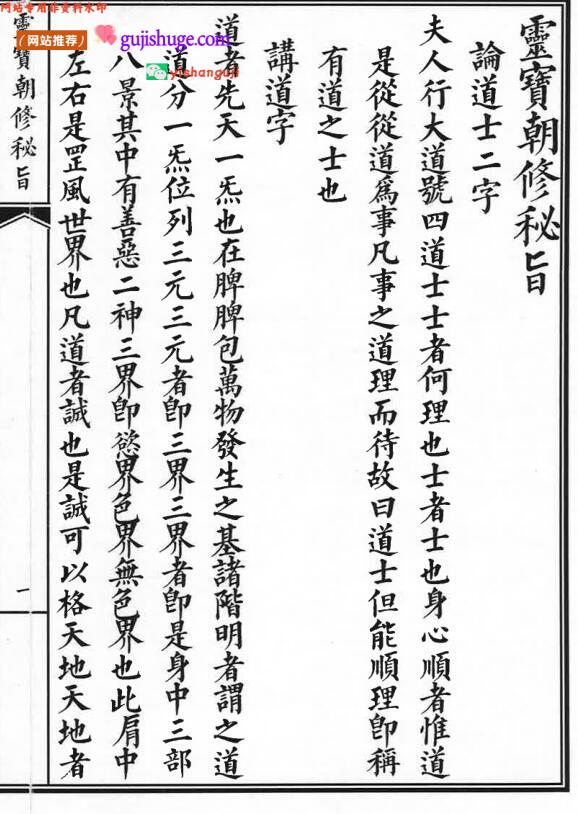 靈寶朝修秘旨
論道士二字
夫人行大道號四道士士者何理也士者士也身心順者惟道
是從從道爲事凡事之道理而待故曰道士但能順理卽稱
有道之士也
講道字
道者先天一炁也在脾脾包萬物發生之基諸階明者謂之道
道分一炁位列三元三元者卽三界三界者卽是身中三部
八景其中有善惡二神三界卽慾界色界無色界也此肩中
左右是罡風世界也凡道者誠也是誠可以格天地天地者
靈寶朝修秘旨
一
网站专用非资料水印
(网站推荐)
gujishuge.com
yishanguji